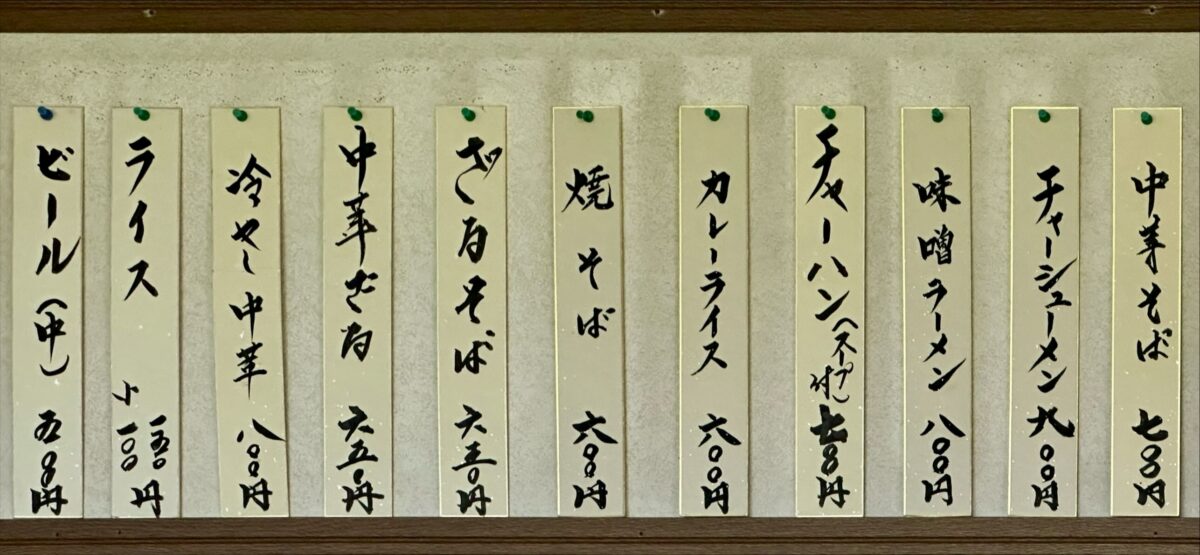 中華そば 七〇〇円
チャーシューメン 九〇〇円
味噌ラーメン 八〇〇円
チャーハン(スープ付) 七〇〇円
カレーライス 六〇〇円
焼そば 六〇〇円
ざるそば 六五〇円
中華ざる 六五〇円
冷やし中華 八〇〇円
ライス 一五〇円
小一〇〇
ビール(中) 五〇〇円